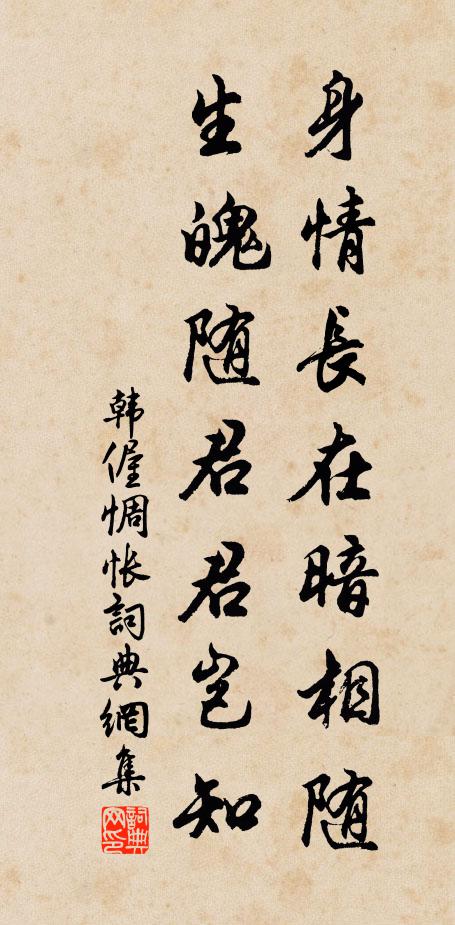 身情長在暗相随
生魄随君君岂知
韩偓惆怅詞典網集
詞典网印